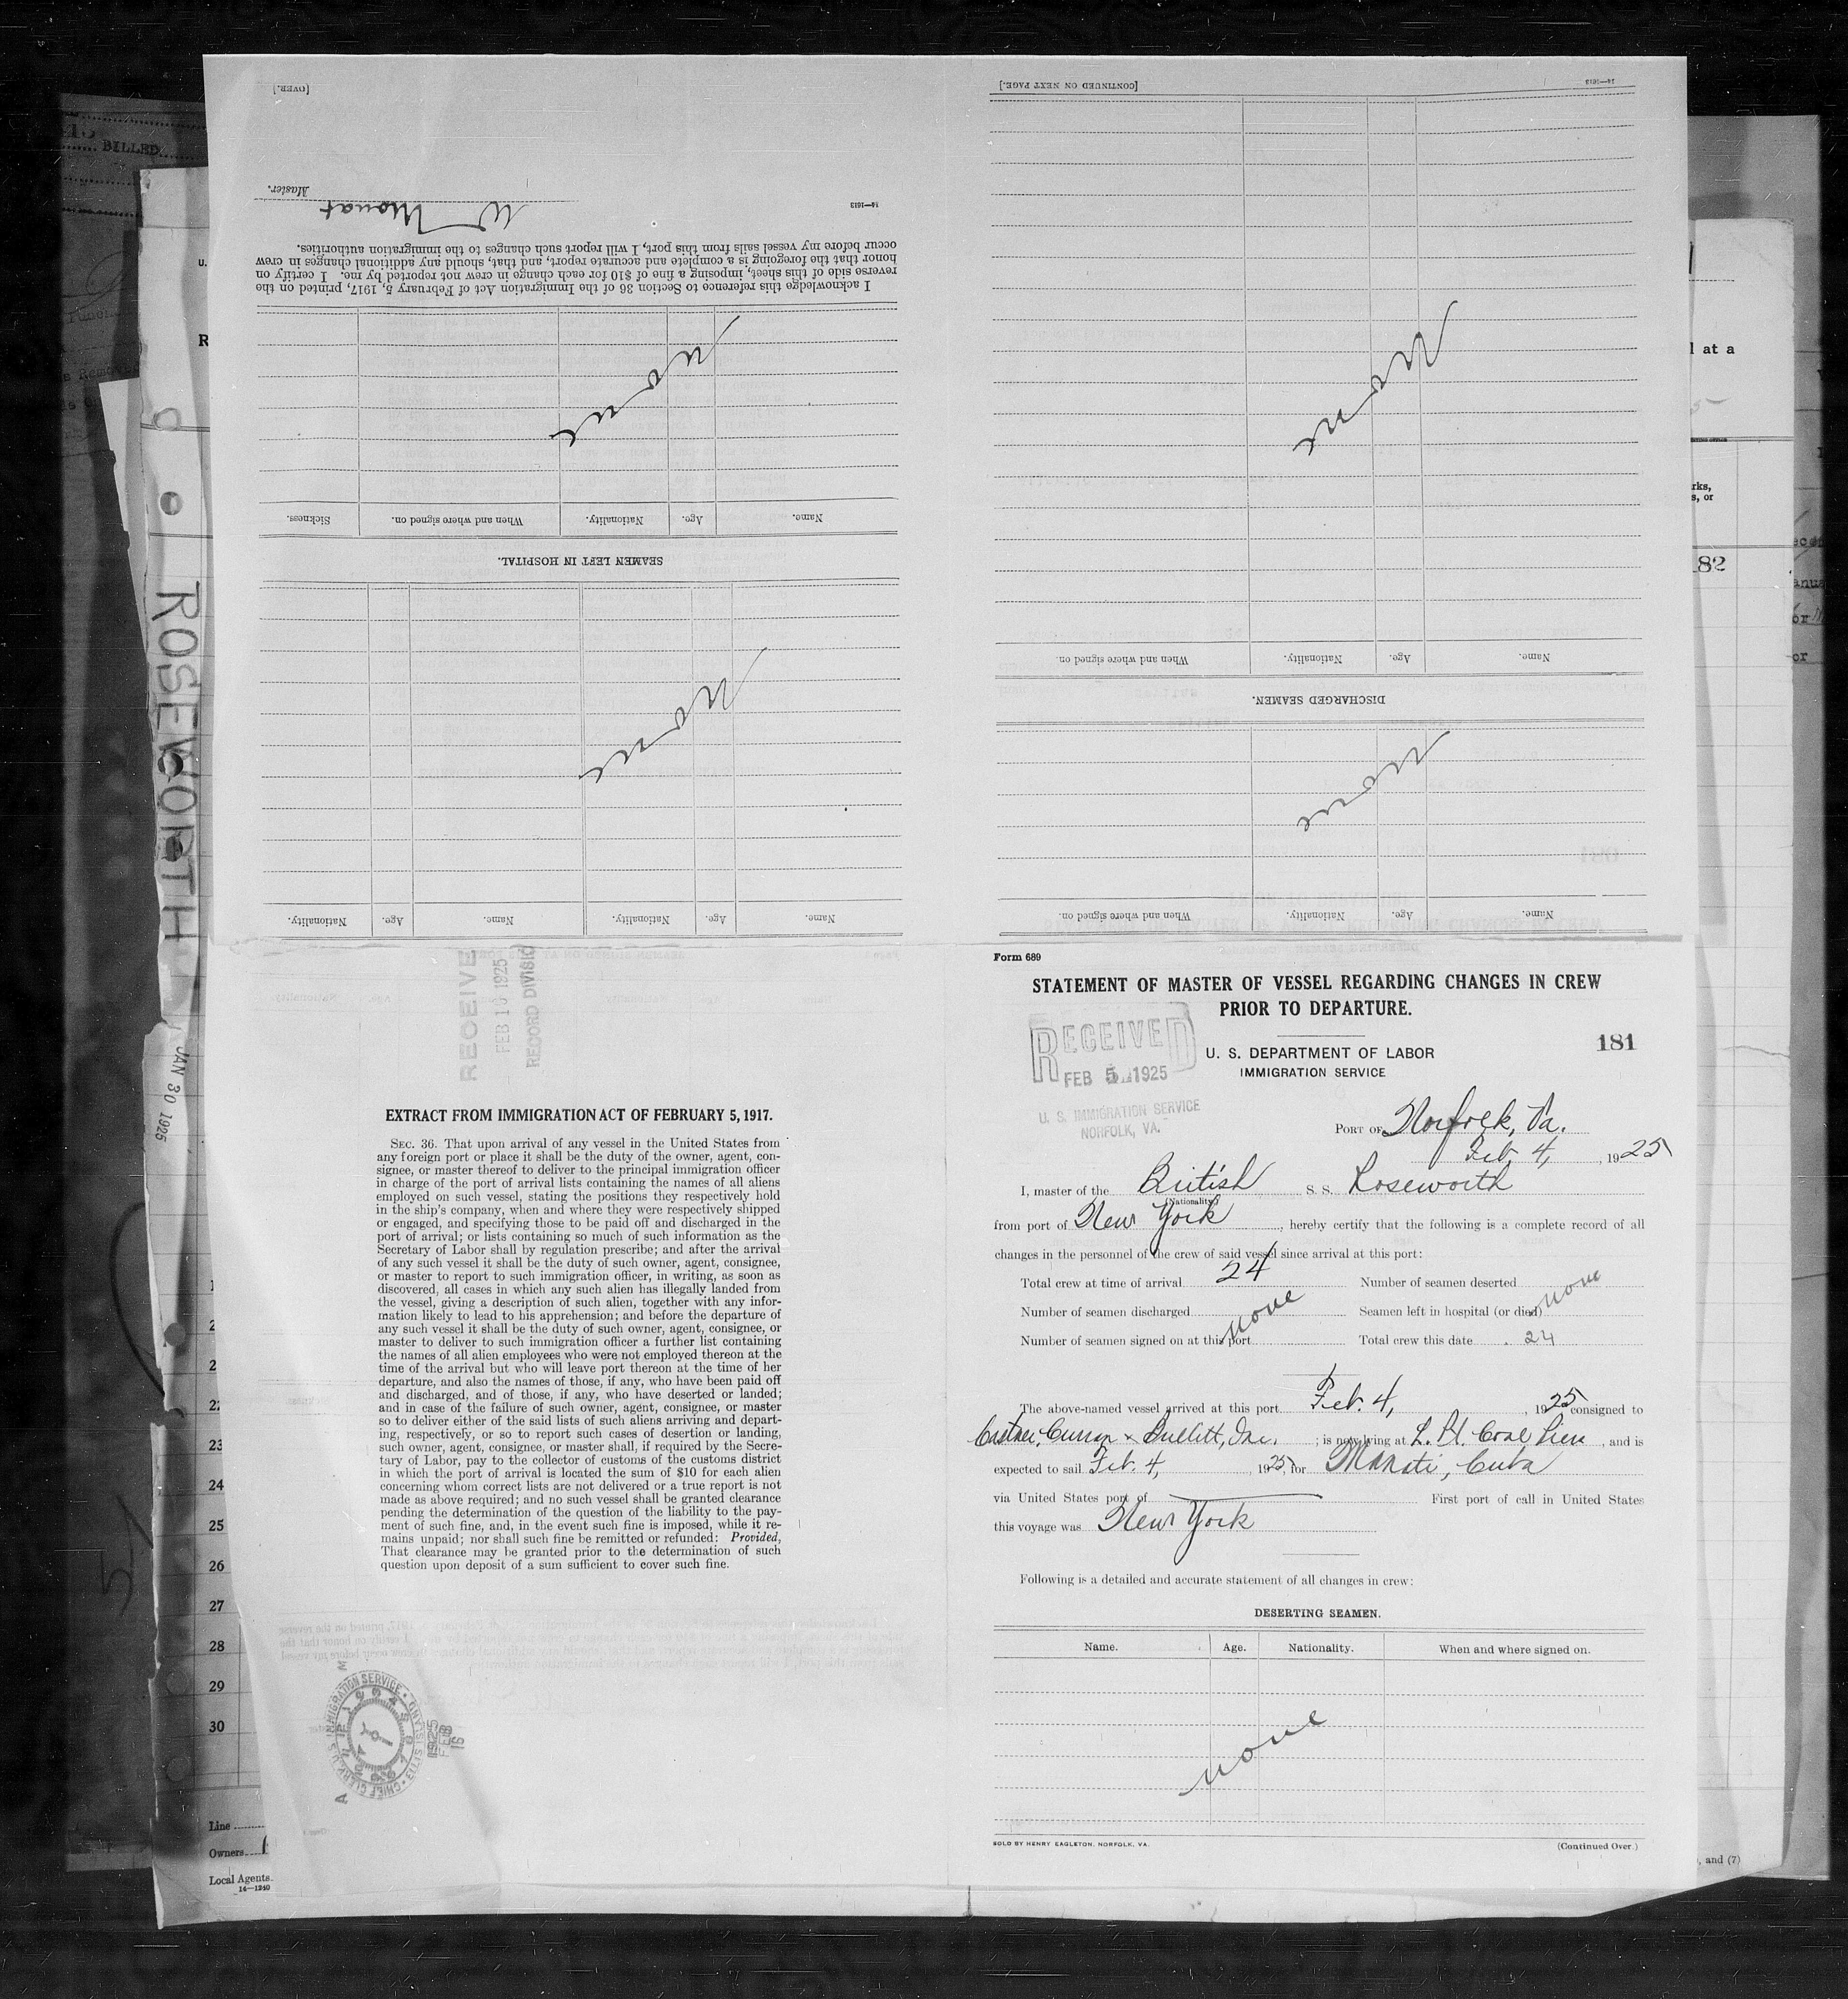 Form 689
STATEMENT OF MASTER OF VESSEL REGARDING CHANGES IN CREW
PRIOR TO DEPARTURE.
RECEIVED
FEB 5 1925
U. S. IMMIGRATION SERVICE
NORFOLK, VA.
U. S. DEPARTMENT OF LABOR
IMMIGRATION SERVICE
181
PORT OF Norfolk, Va.
Feb. 4, , 1925
I, master of the British S. S. Roseworth
(Nationality)
from port of New York, hereby certify that the following is a complete record of all
changes in the personnel of the crew of said vessel since arrival at this port:
Total crew at time of arrival 24 Number of seamen deserted none
Number of seamen discharged none Seamen left in hospital (or died) none
Number of seamen signed on at this port Total crew this date 24
The above-named vessel arrived at this port Feb. 4, , 1925 consigned to
Castner, Curran & Bullitt, Inc. ; is now lying at L. Pt. Coal Piers , and is
expected to sail Feb. 4, , 1925, for Manati, Cuba
via United States port of First port of call in United States
this voyage was New York
Following is a detailed and accurate statement of all changes in crew:
DESERTING SEAMEN.
Name. Age. Nationality. When and where signed on.
none
SOLD BY HENRY EAGLETON, NORFOLK, VA. (Continued Over.)
Name. Age. Nationality. When and where signed on.
none
DISCHARGED SEAMEN.
Name. Age. Nationality. When and where signed on.
None
14—1613 [CONTINUED ON NEXT PAGE.]
Name. Age. Nationality. Name. Age. Nationality.
none
SEAMEN LEFT IN HOSPITAL.
Name. Age. Nationality. When and where signed on. Sickness.
none
I acknowledge this reference to Section 36 of the Immigration Act of February 5, 1917, printed on the
reverse side of this sheet, imposing a fine of $10 for each change in crew not reported by me. I certify on
honor that the foregoing is a complete and accurate report, and that, should any additional changes in crew
occur before my vessel sails from this port, I will report such changes to the immigration authorities.
14—1613
W Mouat
Master.
[OVER.]
RECEIVE
FEB 10 1925
RECORD DIVISIO
EXTRACT FROM IMMIGRATION ACT OF FEBRUARY 5, 1917.
SEC. 36. That upon arrival of any vessel in the United States from
any foreign port or place it shall be the duty of the owner, agent, con-
signee, or master thereof to deliver to the principal immigration officer
in charge of the port of arrival lists containing the names of all aliens
employed on such vessel, stating the positions they respectively hold
in the ship's company, when and where they were respectively shipped
or engaged, and specifying those to be paid off and discharged in the
port of arrival; or lists containing so much of such information as the
Secretary of Labor shall by regulation prescribe; and after the arrival
of any such vessel it shall be the duty of such owner, agent, consignee,
or master to report to such immigration officer, in writing, as soon as
discovered, all cases in which any such alien has illegally landed from
the vessel, giving a description of such alien, together with any infor-
mation likely to lead to his apprehension; and before the departure of
any such vessel it shall be the duty of such owner, agent, consignee, or
master to deliver to such immigration officer a further list containing
the names of all alien employees who were not employed thereon at the
time of the arrival but who will leave port thereon at the time of her
departure, and also the names of those, if any, who have been paid off
and discharged, and of those, if any, who have deserted or landed;
and in case of the failure of such owner, agent, consignee, or master
so to deliver either of the said lists of such aliens arriving and depart-
ing, respectively, or so to report such cases of desertion or landing,
such owner, agent, consignee, or master shall, if required by the Secre-
tary of Labor, pay to the collector of customs of the customs district
in which the port of arrival is located the sum of $10 for each alien
concerning whom correct lists are not delivered or a true report is not
made as above required; and no such vessel shall be granted clearance
pending the determination of the question of the liability to the pay-
ment of such fine, and, in the event such fine is imposed, while it re-
mains unpaid; nor shall such fine be remitted or refunded: Provided,
That clearance may be granted prior to the determination of such
question upon deposit of a sum sufficient to cover such fine.
CHIEF CLERK U. S. IMMIGRATION SERVICE ELLIS ISLAND
1925
FEB
16
BILLED
ROSEWORTH
JAN 30 1925
22
23
24
25
26
27
28
29
30
Line
Owners
Local Agents
14—1240
l at a
rks,
s, or
82
, and (7)